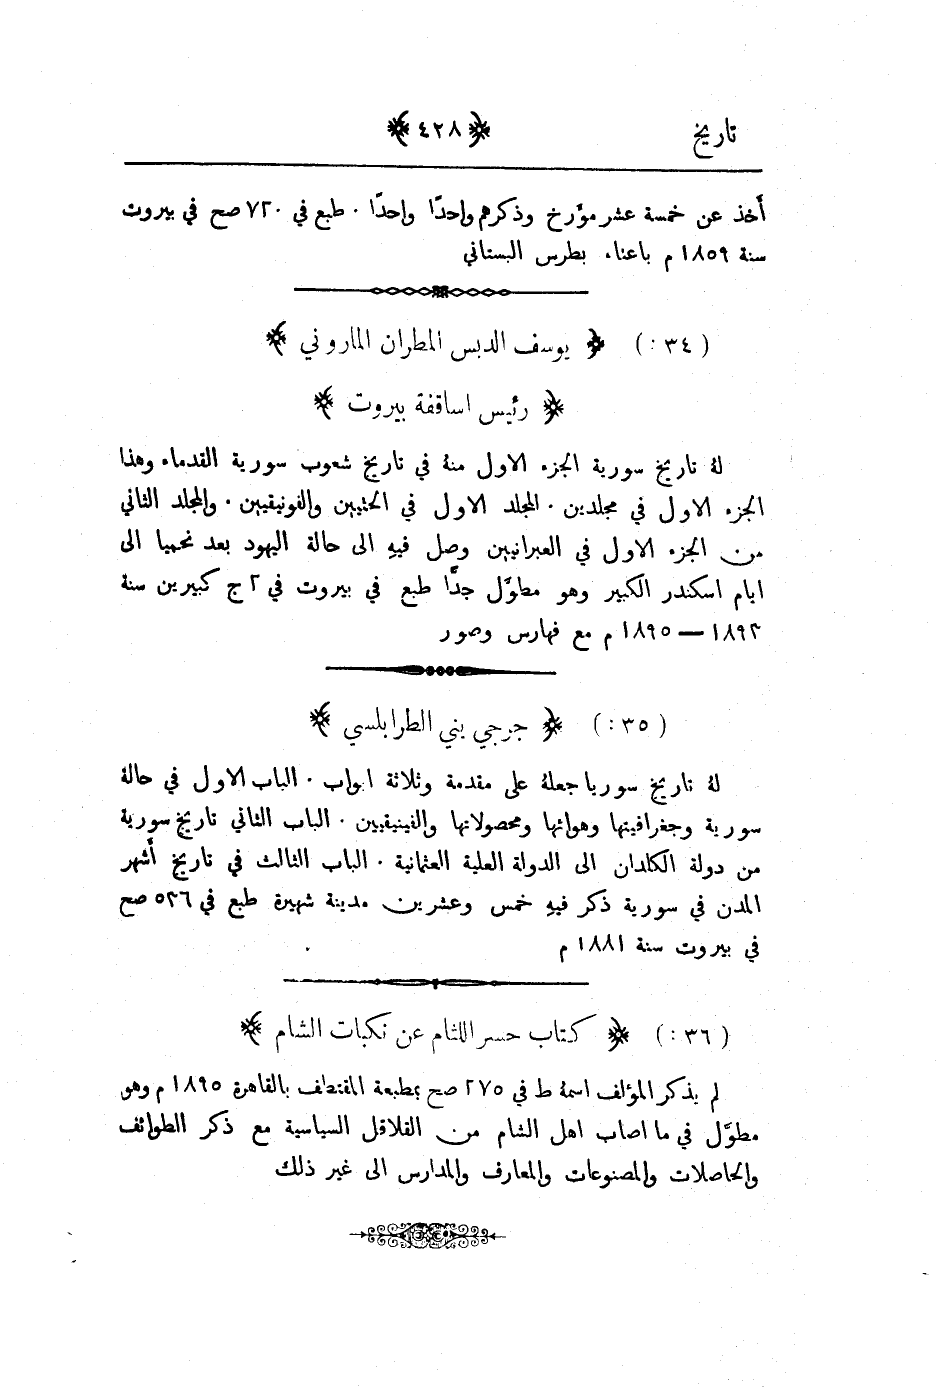 تاريخ ﴿٤٢٨﴾
أخذ عن خمسة عشر مؤَرخ وذكرهم واحدًا واحدًا ٠ طبع في ٧٢٠ صح في بيروت
سنة ١٨٥٩ م باعناء بطرس البستاني
( ٣٤ : ) ﴿ يوسف الدبس المطران الماروني ﴾
﴿ رئيس اساقفة بيروت ﴾
لهُ تاريخ سورية الجزء الاول منهُ في تاريخ شعوب سورية القدماء وهذا
الجزء الاول في مجلدين ٠ المجلد الاول في الحثيين والفونيقيين ٠ والمجلد الثاني
من الجزء الاول في العبرانيين وصل فيهِ الى حالة اليهود بعد نحميا الى
ايام اسكندر الكبير وهو مطوَّل جدًّا طبع في بيروت في ٢ ج كبيرين سنة
١٨٩٣ — ١٨٩٥ م مع فهارس وصور
( ٣٥ : ) ﴿ جرجي يني الطرابلسي ﴾
لهُ تاريخ سوريا جعلهُ على مقدمة وثلاثة ابواب ٠ الباب الاول في حالة
سورية وجغرافيتها وهوائها ومحصولاتها والفينيقيين ٠ الباب الثاني تاريخ سورية
من دولة الكلدان الى الدولة العلية العثمانية ٠ الباب الثالث في تاريخ أشهر
المدن في سورية ذكر فيهِ خمس وعشرين مدينة شهيرة طبع في ٥٣٦ صح
في بيروت سنة ١٨٨١ م
( ٣٦ : ) ﴿ كتاب حسر اللثام عن نكبات الشام ﴾
لم يذكر المؤلف اسمهُ ط في ٢٧٥ صح بمطبعة المقتطف بالقاهرة ١٨٩٥ م وهو
مطوَّل في ما اصاب اهل الشام من القلاقل السياسية مع ذكر الطوائف
والحاصلات والمصنوعات والمعارف والمدارس الى غير ذلك